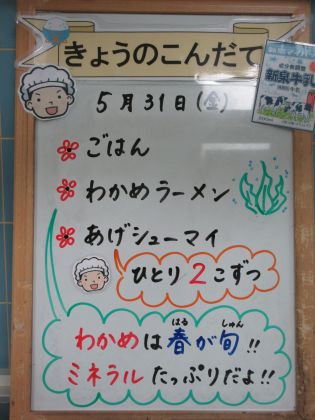 きょうのこんだて
5月31日(金)
ごはん
わかめラーメン
あげシューマイ
ひとり2こずつ
わかめは春が旬!!
はる しゅん
ミネラルたっぷりだよ!!
成分無調整
新泉牛乳